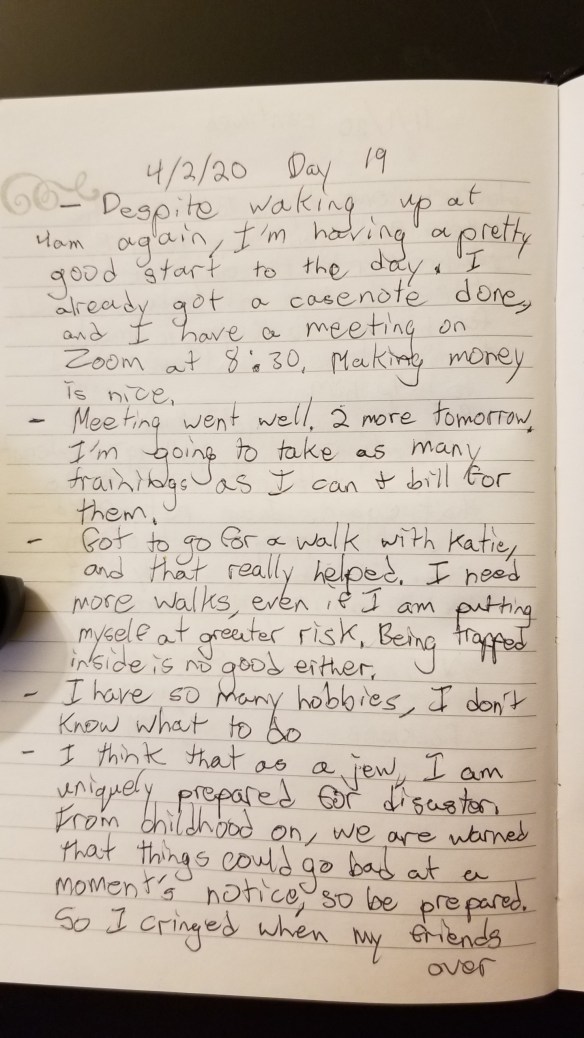 4/2/20 Day 19
- Despite waking up at
4am again, I'm having a pretty
good start to the day. I
already got a casenote done,
and I have a meeting on
Zoom at 8:30. Making money
is nice.
- Meeting went well. 2 more tomorrow.
I'm going to take as many
trainings as I can & bill for
them.
- Got to go for a walk with Katie,
and that really helped. I need
more walks, even if I am putting
myself at greater risk. Being trapped
inside is no good either.
- I have so many hobbies, I don't
know what to do
- I think that as a jew, I am
uniquely prepared for disaster.
From childhood on, we are warned
that things could go bad at a
moment's notice, so be prepared.
So I cringed when my friends
over